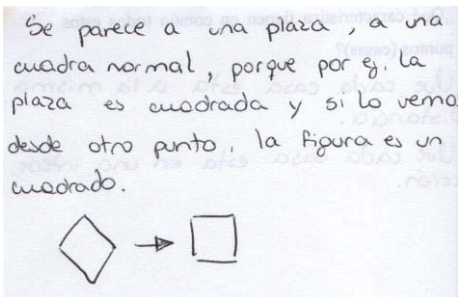 Se parece a una plaza, a una
cuadra normal, porque por ej. la
plaza es cuadrada y si lo vemo
desde otro punto, la figura es un
cuadrado.